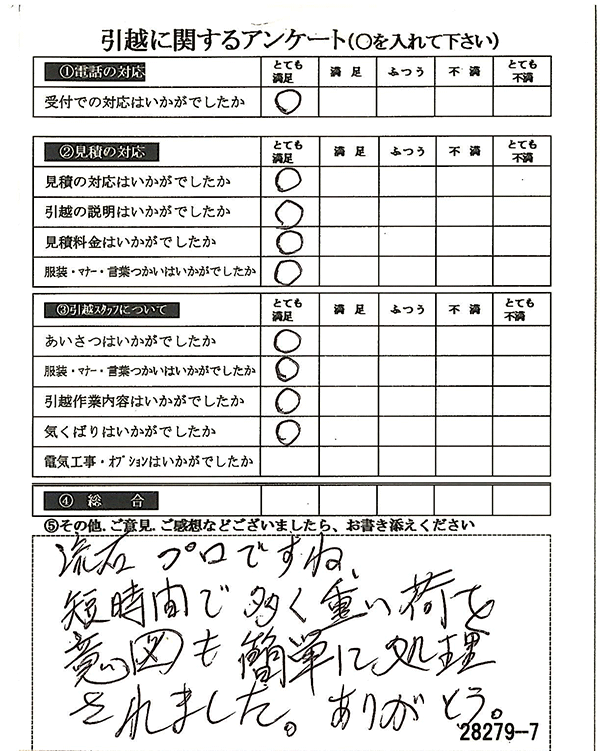 引越に関するアンケート(○を入れて下さい)
①電話の対応 とても満足 満足 ふつう 不満 とても不満
受付での対応はいかがでしたか ○
②見積の対応 とても満足 満足 ふつう 不満 とても不満
見積の対応はいかがでしたか ○
引越の説明はいかがでしたか ○
見積料金はいかがでしたか ○
服装・マナー・言葉つかいはいかがでしたか ○
③引越スタッフについて とても満足 満足 ふつう 不満 とても不満
あいさつはいかがでしたか ○
服装・マナー・言葉つかいはいかがでしたか ○
引越作業内容はいかがでしたか ○
気くばりはいかがでしたか ○
電気工事・オプションはいかがでしたか
④総合
⑤その他.ご意見.ご感想などございましたら、お書き添えください
流石プロですね、
短時間で多く重い荷を
意図も簡単に処理
されました。ありがとう。
28279-7